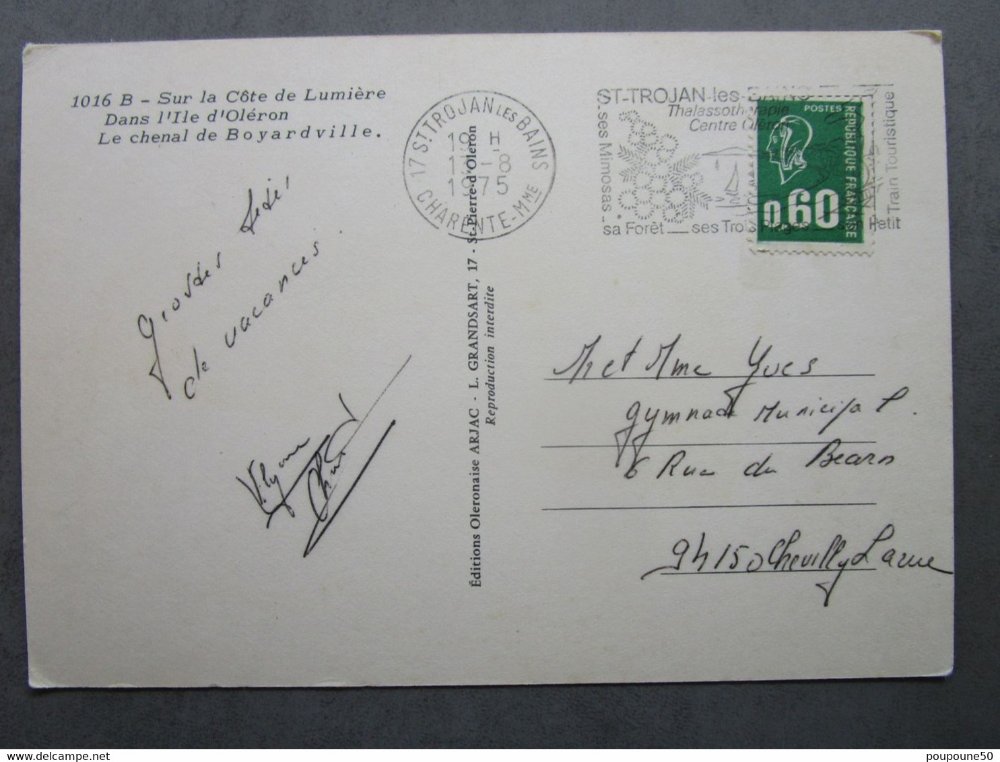 1016 B - Sur la Côte de Lumière
Dans l'Ile d'Oléron
Le chenal de Boyardville.
17 ST TROJAN LES BAINS
19 H
17-8
1975
CHARENTE-MME
ST-TROJAN-les-BAINS
Thalassothérapie
Centre Oléron
ses Mimosas
sa Forêt _ ses Trois Plages
Petit
Train Touristique
POSTES
REPUBLIQUE FRANÇAISE
0,60
de vacances
Editions Oleronaise ARJAC - L. GRANDSART, 17 - St-Pierre-d'Oleron
Reproduction interdite
M et Mme Yves
gymnase Municipal
6 Rue du Bearn
94150 Chevilly Larue
poupoune50